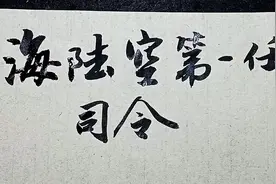 海陆空第一任
司令